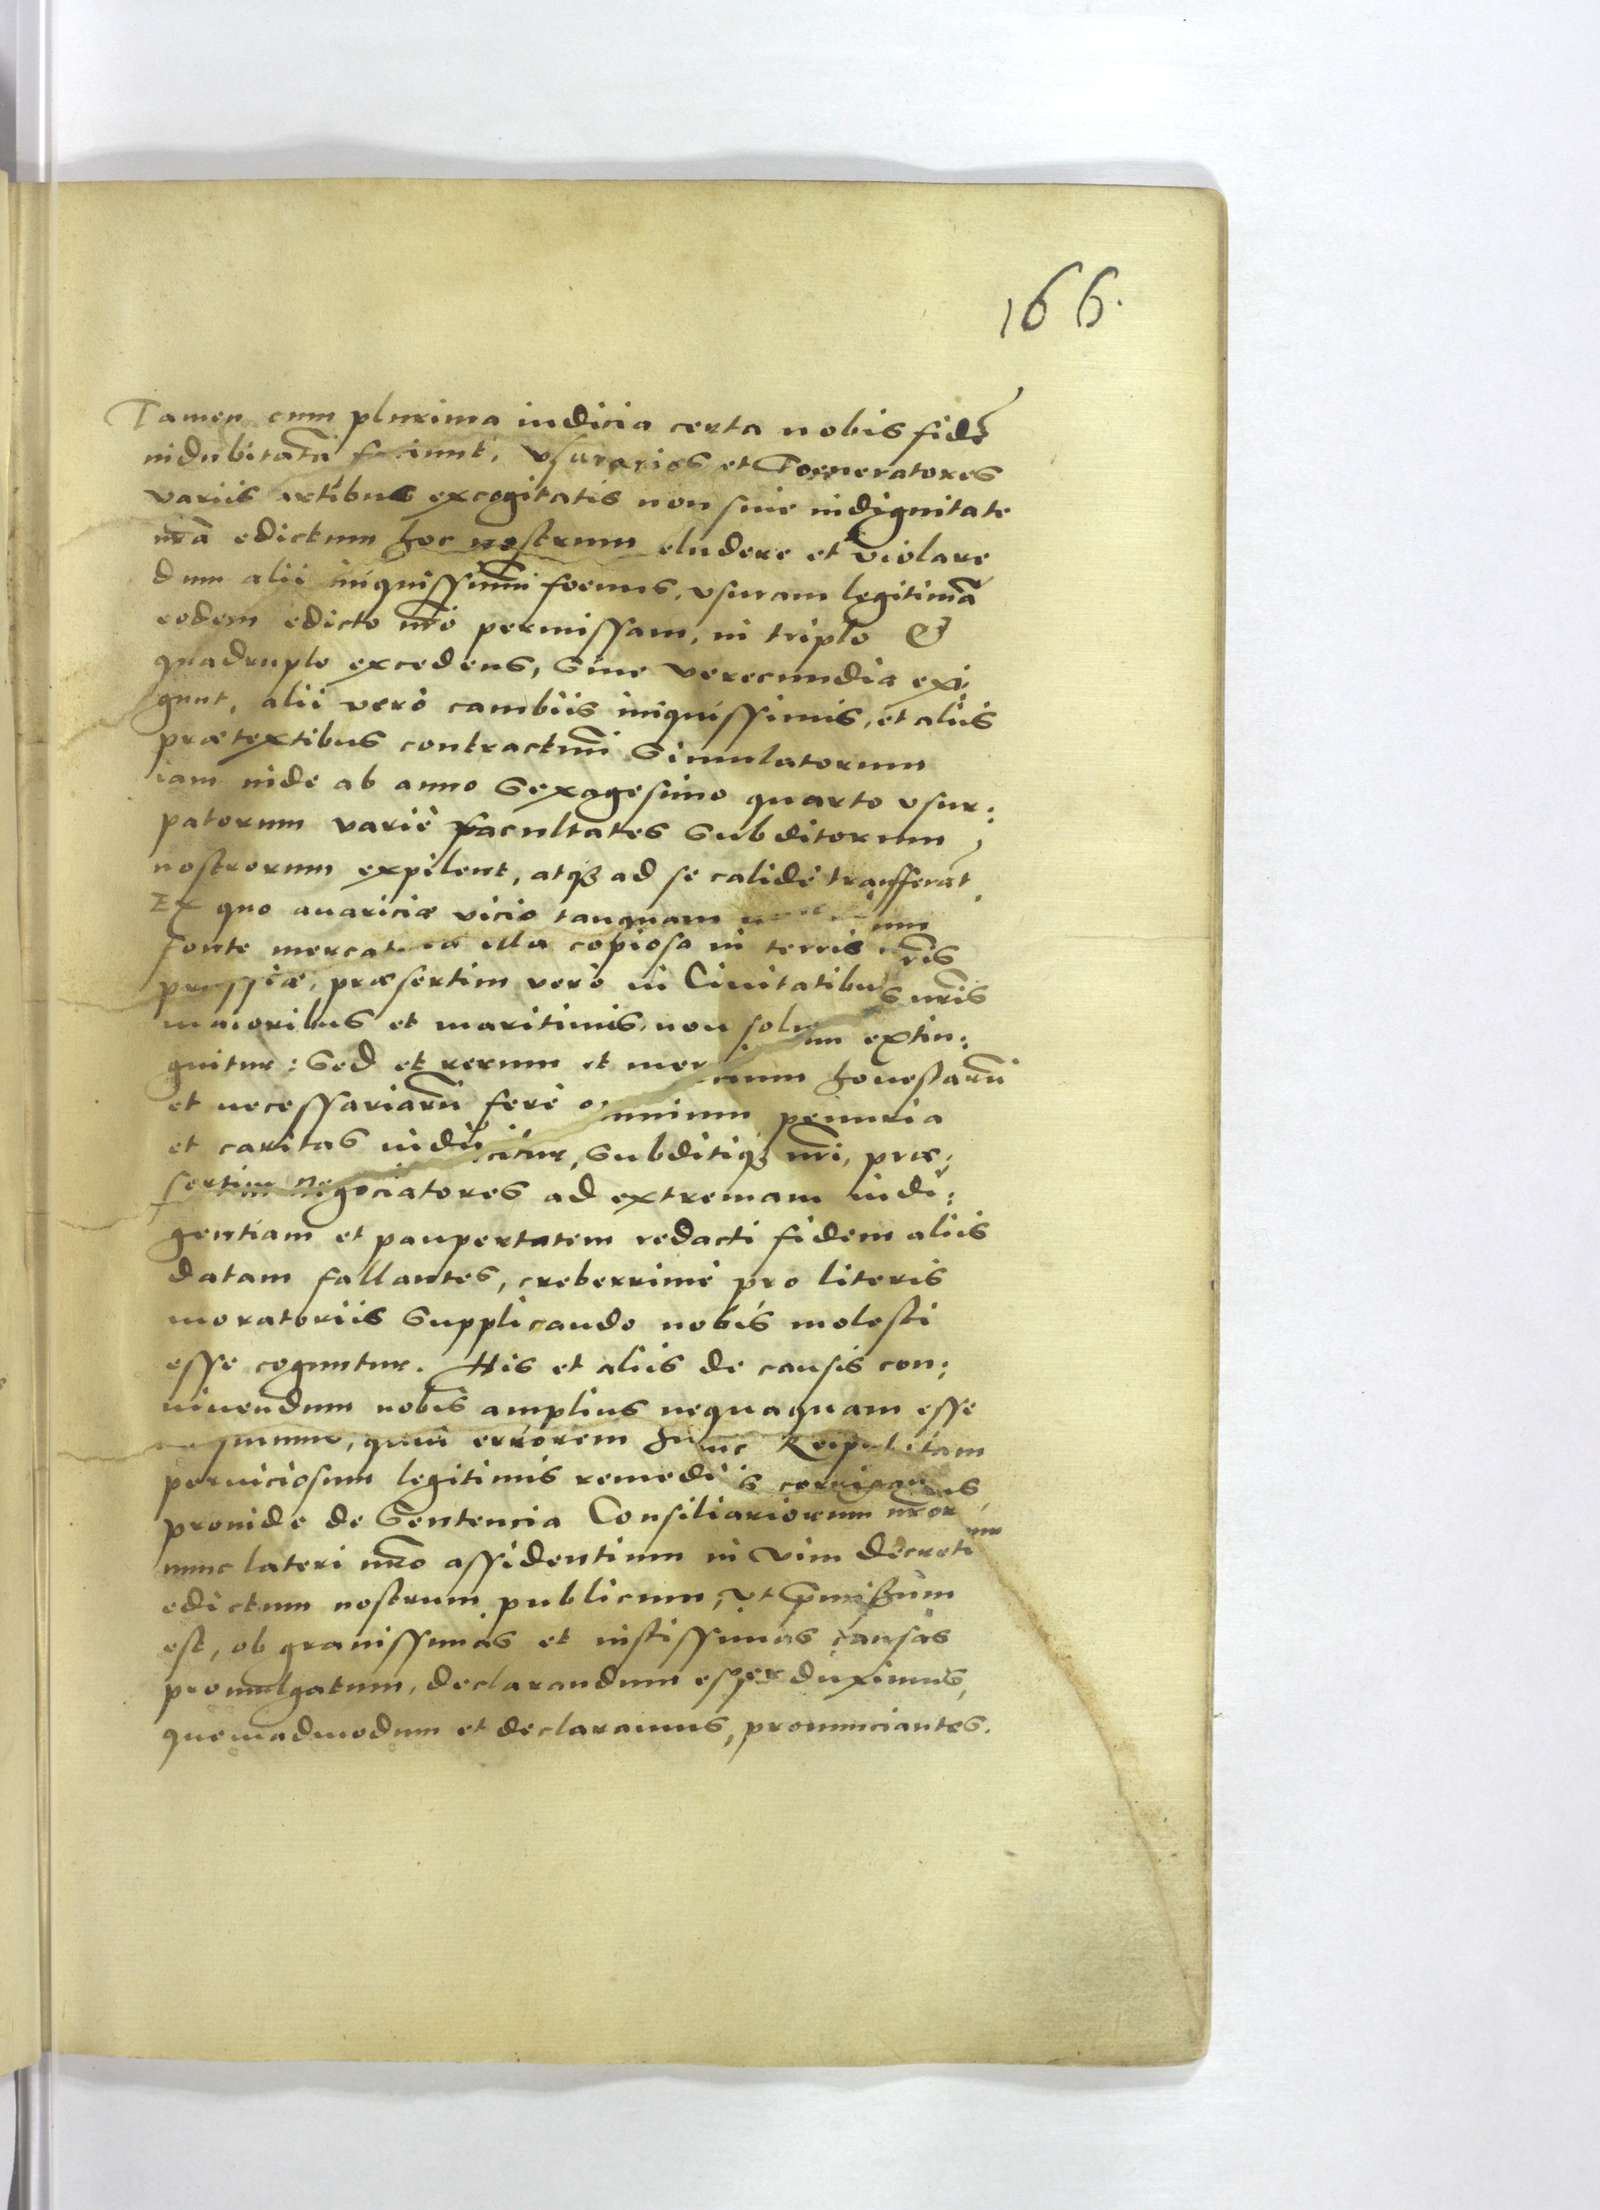 166.
Tamen cum plurima indicia certa nobis fidē
indubitatā faciunt, vsurarios et Foeneratores
variis artibus excogitatis non sine indignitate
nr̄a edictum hoc nostrum eludere et violare
dum alii iniquissimū foenus, vsuram legitimā
eodem edicto nr̄o permissam, in triplo &
quadruplo excedens, sine verecundia exi:
gunt, alii verò cambiis iniquissimis, et aliis
prætextibus contractuū simulatorum
iam inde ab anno sexagesimo quarto vsur:
patorum variè facultates subditorum
nostrorum expilent, atqʒ ad se calidè transferāt
Ex quo avariciæ vicio tanquam
fonte mercatura illa copiosa in terris nr̄is
prussiæ, præsertim verò in Civitatibus nr̄is
maioribus et maritimis, non solum extin:
guitur: sed et rerum et mercium honestarū
et necessariarū ferè omnium penuria
et caritas inducitur, subditiqʒ nr̄i, præ:
sertim negociatores ad extremam indi:
gentiam et paupertatem redacti fidem aliis
datam fallantes, creberrimè pro literis
moratoriis supplicando nobis molesti
esse coguntur. His et aliis de causis con:
nivendum nobis amplius nequaquam esse
quin errorem hunc Reipublicam
perniciosum legitimis remediis corrigamus,
proinde de sentencia Consiliariorum nr̄orum
nunc lateri nr̄o assidentium in vim decreti
edictum nostrum publicum, vt p̄missum
est, ob gravissimas et iustissimas causas
promulgatum, declarandum esse duximus,
quemadmodum et declaramus, pronunciantes.